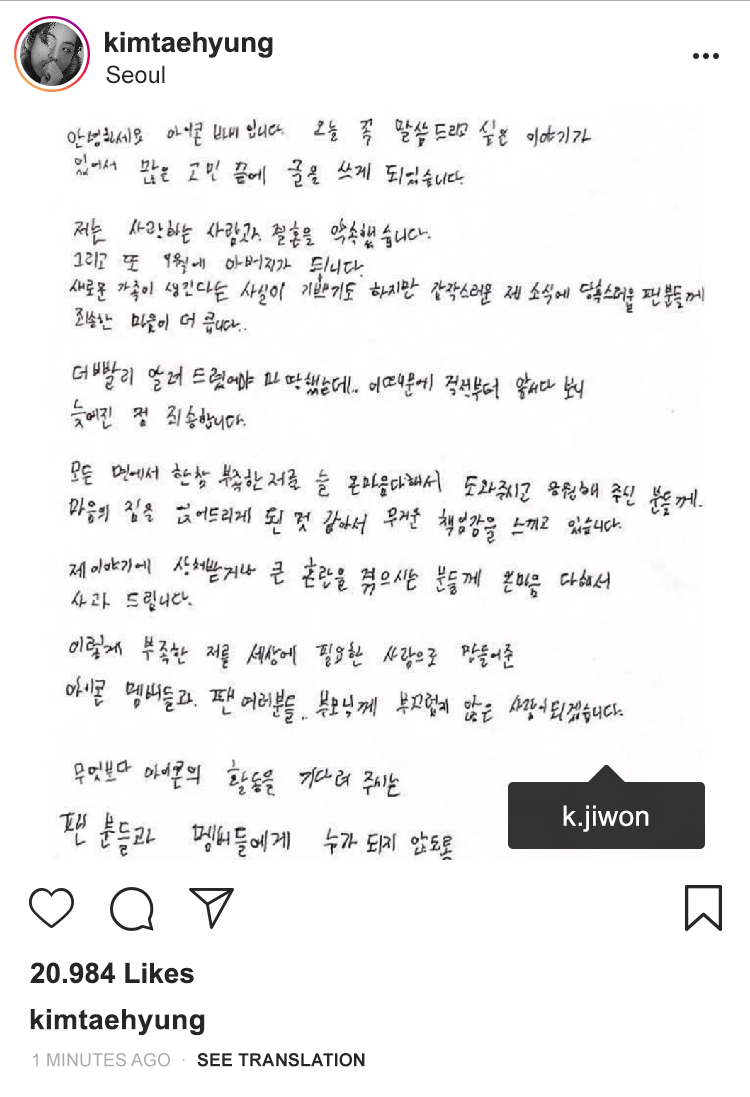 kimtaehyung
Seoul
안녕하세요 아이콘 바비 입니다. 오늘 꼭 말씀 드리고 싶은 이야기가
있어서 많은 고민 끝에 글을 쓰게 되었습니다.
저는 사랑하는 사람과 결혼을 약속했습니다.
그리고 또 9월에 아버지가 됩니다.
새로운 가족이 생긴다는 사실이 기쁘기도 하지만 갑작스러운 제 소식에 당혹스러울 팬분들께
죄송한 마음이 더 큽니다..
더 빨리 알려 드렸어야 마땅했는데.. 이 때문에 걱정부터 앞서다 보니
늦어진 점 죄송합니다.
모든 면에서 한참 부족한 저를 늘 온마음다해서 도와주시고 응원해 주신 분들께.
마음의 짐을 얹어드리게 된 것 같아서 무거운 책임감을 느끼고 있습니다.
제 이야기에 상처받거나 큰 혼란을 겪으시는 분들께 온마음 다해서
사과 드립니다.
이렇게 부족한 저를 세상에 필요한 사람으로 만들어준
아이콘 멤버들과. 팬 여러분들.. 부모님께 부끄럽지 않은 사람이 되겠습니다.
무엇보다 아이콘의 활동을 기다려 주시는
팬 분들과 멤버들에게 누가 되지 않도록
k.jiwon
20.984 Likes
kimtaehyung
1 MINUTES AGO · SEE TRANSLATION